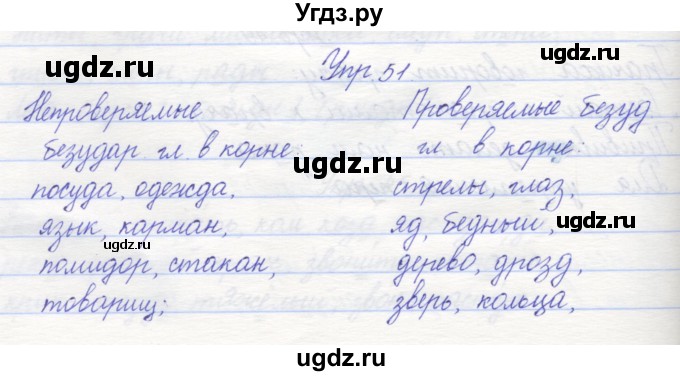 Угдз.ру
Упр 51
Непроверяемые
безудар. гл. в корне
посуда, одежда,
язык, карман,
помидор, стакан,
товарищ;
Проверяемые безуд
гл. в корне:
стрелы, глаз,
яд, бедный,
дерево, дрозд,
зверь, кольца,
ugdz.ru
ugdz.ru
ugdz.ru
ugdz.ru
ugdz.ru
ugdz.ru
ugdz.ru